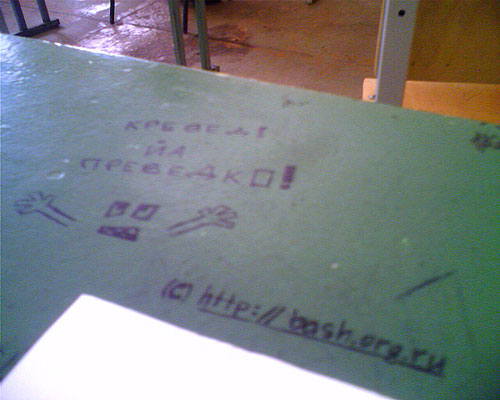 КРЕВЕД!
ЙА
ПРЕВЕДКО!
(c) http://bash.org.ru